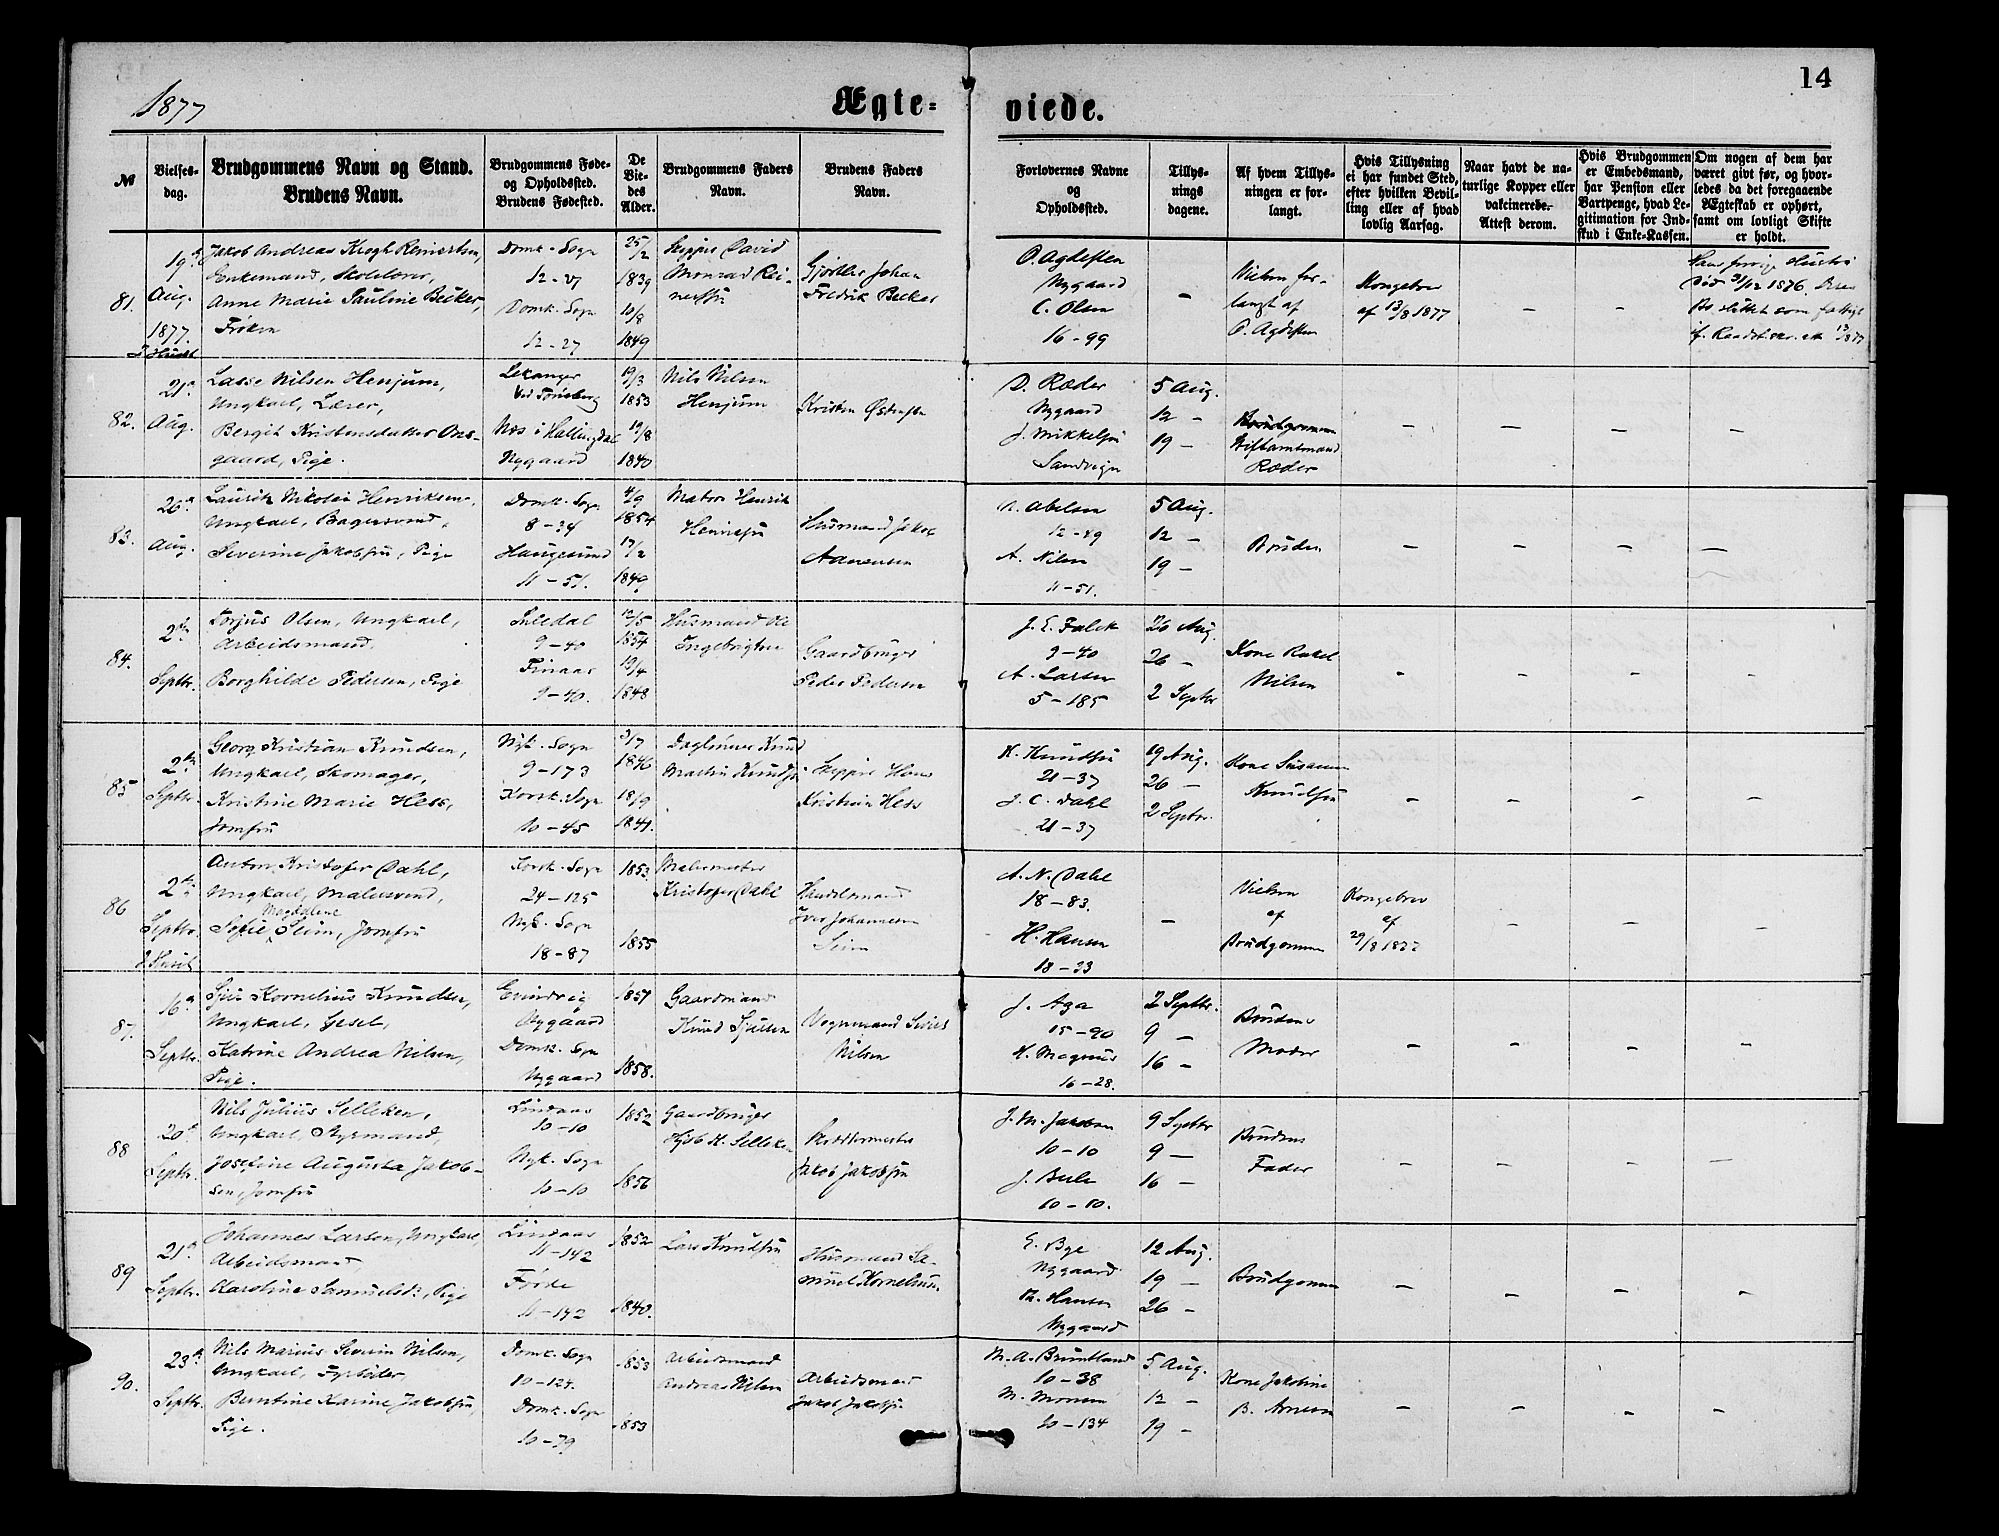 1877
Ægte-
viede.
14
№
Vielses-
dag.
Brudgommens Navn og Stand.
Brudens Navn.
Brudgommens Føde-
og Opholdssted.
Brudens Fødested.
De
Vie-
des
Alder.
Brudgommens Faders
Navn.
Brudens Faders
Navn.
Forlovernes Navne
og
Opholdssted.
Tillys-
nings
dagene.
Af hvem Tillys-
ningen er for-
langt.
Hvis Tillysning
ei har fundet Sted,
efter hvilken Bevil-
ling eller af hvad
lovlig Aarsag.
Naar havt de na-
turlige Kopper eller
vakcinerede.
Attest derom.
Hvis Brudgommen
er Embedsmand,
har Pension eller
Vartpenge, hvad Le-
gitimation for Ind-
skud i Enke-Kassen.
Om nogen af dem har
været givt før, og hvor-
ledes da det foregaaende
Ægteskab er ophørt,
samt om lovligt Skifte
er holdt.
81.
19de
Aug.
1877.
Jakob Andreas Krogh
Enkemand, Skolelærer,
Anne Marie Pauline Becker,
Frøken
Domk. Sogn
12-27
Domk. Sogn
12-27
25/2
1839
10/8
1849
Skipper David
Monrad Rei-
Gjørtler Johan
Fredrik Becker
O. Agdesten
Nygaard
C. Olsen
16-99
-
Vielsen for-
langt af
O. Agdesten
Kongebrev
af 13/8 1877
-
-
Hans forrige Hustru
død 31/12 1876.
82.
21de
Aug.
Lasse Nilsen Henjum,
Ungkarl, Lærer,
Bergit Kristensdatter Ons-
gaard, Pige.
Lekanger
Nes i Hallingdal
Nygaard
19/3
1853
19/8
1840
Nils Nilsen
Henjum
Kristen
O. Ræder
Nygaard
J. Mikkelsen
Sandvigen
5 Aug.
12 -
19 -
Stiftamtmand
Ræder
-
-
-
-
83.
26de
Aug.
Lauritz Nikolai Henriksen,
Ungkarl, Bagersvend,
Severine Jakobsen, Pige
Domk. Sogn
8-34
Haugesund
11-51.
4/9
1854
17/2
1849
Matros Henrik
Henriksen
Husmand Jakob
Aanensen
A. Abelsen
12-49
A. Nilsen
11-51.
5 Aug.
12 -
19 -
Bruden
-
-
-
-
84.
2den
Septbr.
Torjus Olsen, Ungkarl,
Arbeidsmand.
Borghilde Pedersen, Pige
Suledal
9-40
Finaas
9-40.
12/5
1854
19/4
1848
Husmand Ole
Ingebrigtsen
Gaardbruger
Peder Pedersen
J. E. Falck
9-40
A. Larsen
5-185
26 Aug.
26 -
2 Septbr
Kone Rakel
Nilsen
-
-
-
-
85
2den
Septbr.
Georg Kristian Knudsen,
Ungkarl, Skomager,
Kristine Marie Hess,
Jomfru
Nyk. Sogn
9-173
Korsk. Sogn
10-45
3/7
1846
18/9
1841.
Daglønner Knud
Martin Knudsen
Skipper Hans
Kristian Hess
K. Knudsen
21-37
J. C. Dahl
21-37
19 Aug.
26 -
2 Septbr.
Kone Susanne
Knudsen
-
-
-
-
86
2den
Septbr.
Anton Kristofer Dahl,
Ungkarl, Malersvend,
Magdalene
Sofie Seim, Jomfru
Korsk. Sogn
24-125
Nyk. Sogn
18-87
1853.
1855
Malermester
Kristofer Dahl
Handelsmand
Iver Johannesen
Seim
A. N. Dahl
18-83.
H. Hansen
18-33
-
Vielsen
af
Brudgommen
Kongebrev
af
29/8 1877
-
-
-
87.
16de
Septbr.
Sjur Kornelius Knudsen,
Ungkarl, Gesel,
Katrine Andrea Nilsen,
Pige.
Evindvig
Nygaard
Domk. Sogn
Nygaard
1851
1858.
Gaardmand
Knud Sjursen
Vognmand Sivert
Nilsen
J. Aga
15-90
K. Magnus
16-28.
2 Septbr.
9 -
16 -
Brudens
Moder
-
-
-
-
88
20de
Septbr.
Nils Julius Selleken,
Ungkarl, Styrmand,
Josefine Augusta Jakob-
sen, Jomfru
Lindaas
10-10
Nyk. Sogn
10-10
1852
1856
Gaardbruger
H. Selleken
Skræddermester
Jakob Jakobsen
J. M. Jakobsen
10-10
J. Bule
10-10.
9 Septbr
9 -
16 -
Brudens
Fader
-
-
-
-
89
21de
Septbr.
Johannes Larsen, Ungkarl,
Arbeidsmand
Karoline Samuelsd., Pige
Lindaas
11-142
Førde
11-142
1852
1840.
Lars Knudsen
Husmand Sa-
muel Kornelius.
E. Bye
Nygaard
Th. Hansen
Nygaard
12 Aug.
19 -
26 -
Brudgommen
-
-
-
-
90.
23de
Septbr.
Nils Marius Severin Nilsen,
Ungkarl, Fyrbøder,
Berntine Karine Jakobsen,
Pige.
Domk. Sogn
10-124.
Domk. Sogn
10-79
1853
1853
Arbeidsmand
Andreas Nilsen
Arbeidsmand
Jakob Jakobsen
M. A. Bruntland
10-38
M. Monsen
20-134
5 Aug.
12 -
19 -
Kone Jakobine
B. Arnesen
-
-
-
-